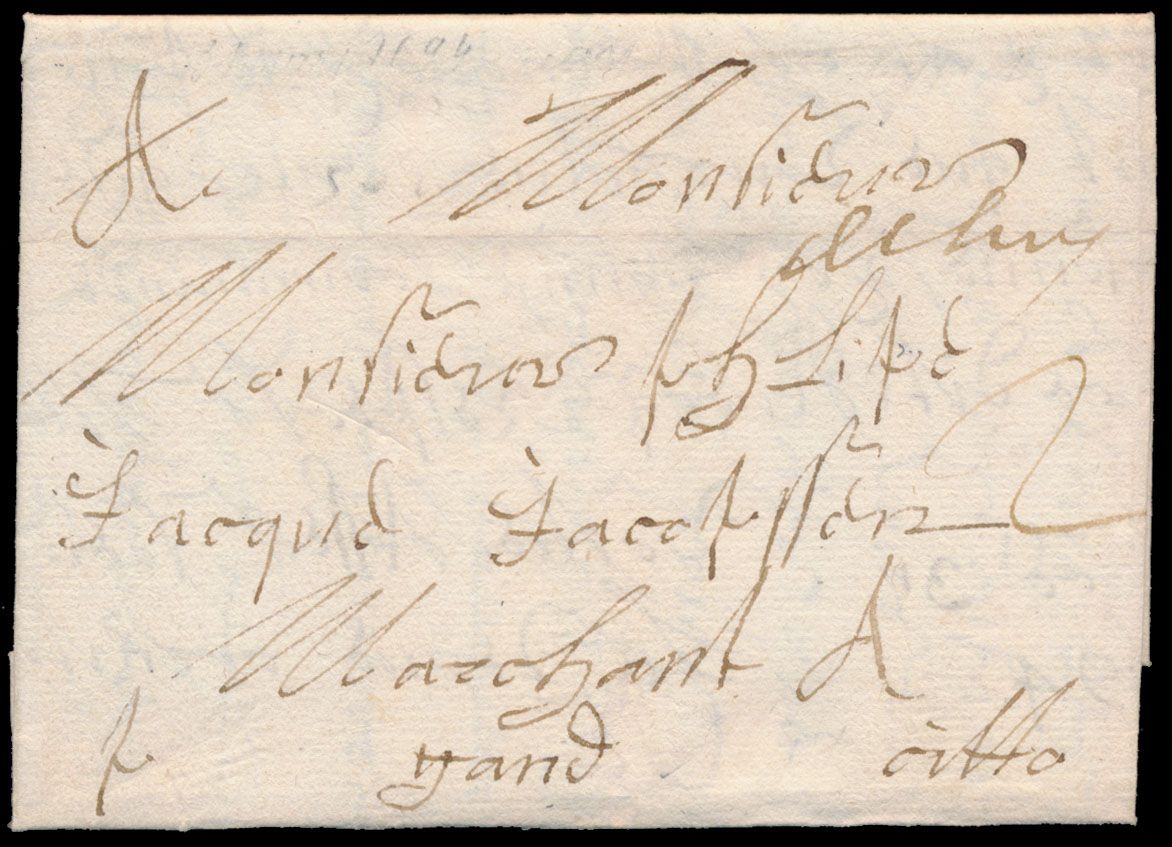 A Monsieur
de huy
Monsieur phlipe
2
Jacque Jacopssen
Marchant A
p gand citto